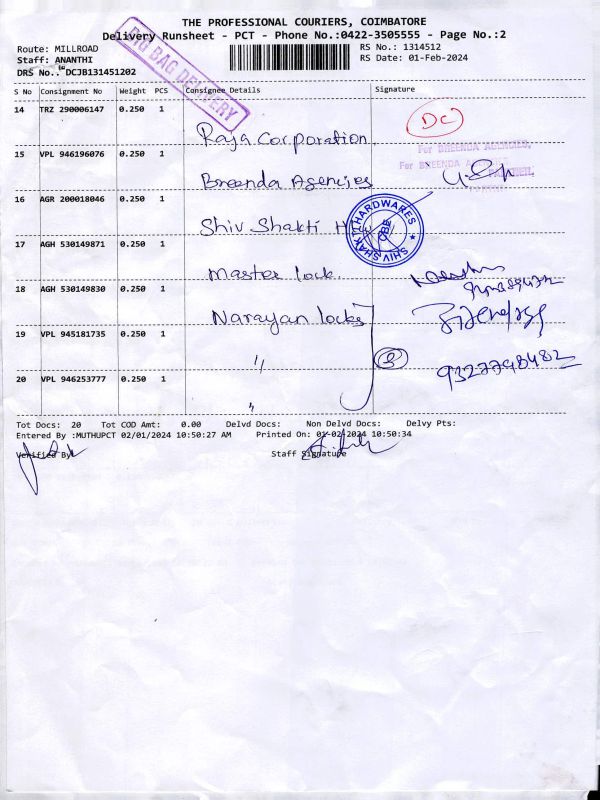 THE PROFESSIONAL COURIERS, COIMBATORE
Delivery Runsheet - PCT - Phone No.:0422-3505555 - Page No.:2
Route: MILLROAD
RS No.: 1314512
Staff: ANANTHI
RS Date: 01-Feb-2024
DRS No.: DCJB131451202
BIG BAG DELIVERY
S No Consignment No Weight PCS Consignee Details Signature
14 TRZ 290006147 0.250 1
Raja Corporation
DC
15 VPL 946196076 0.250 1
Breenda Agencies
For BREENDA AGENCIES,
For BREENDA
16 AGR 200018046 0.250 1
Shiv Shakti H
SHIV SHAKTI HARDWARES
CBE
17 AGH 530149871 0.250 1
Master lock.
18 AGH 530149830 0.250 1
Narayan locks
19 VPL 945181735 0.250 1
"
3
9327798482
20 VPL 946253777 0.250 1
"
Tot Docs: 20 Tot COD Amt: 0.00 Delvd Docs: Non Delvd Docs: Delvy Pts:
Entered By :MUTHUPCT 02/01/2024 10:50:27 AM Printed On: 01-02-2024 10:50:34
Verified By
Staff Signature